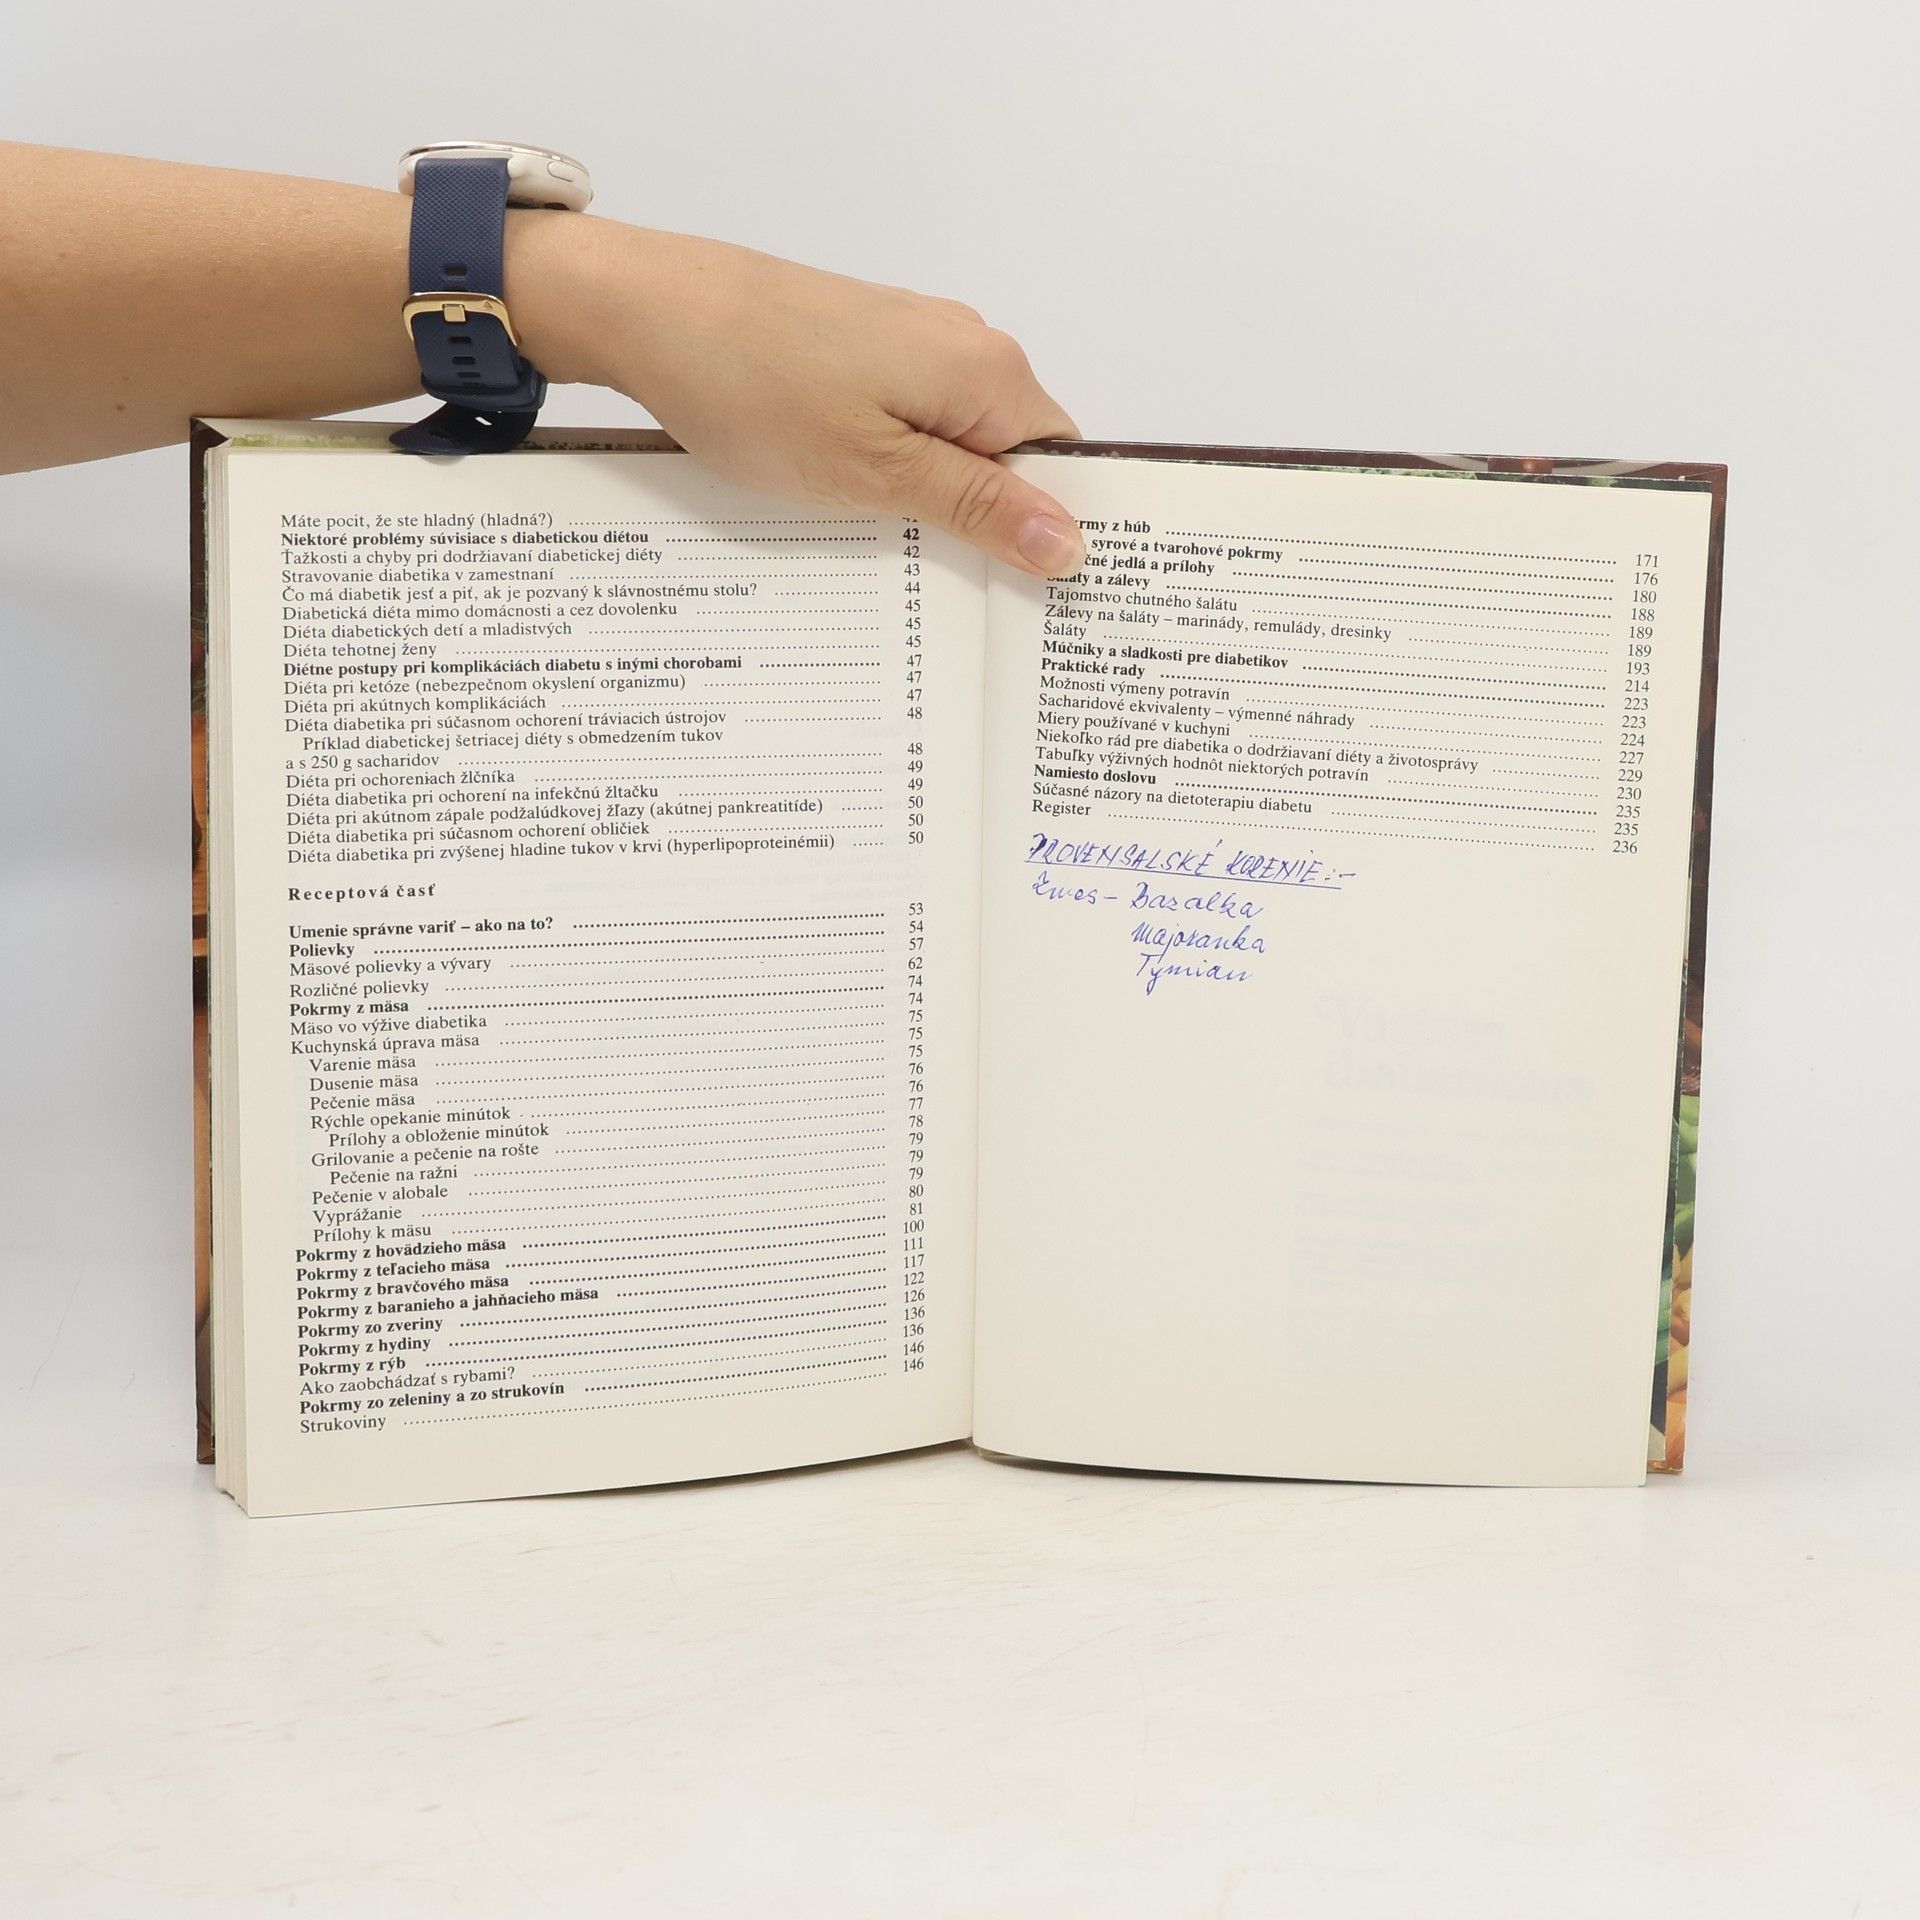 Máte pocit, že ste hladný (hladná?) ........ 41
Niektoré problémy súvisiace s diabetickou diétou ........ 42
Ťažkosti a chyby pri dodržiavaní diabetickej diéty ........ 42
Stravovanie diabetika v zamestnaní ........ 43
Čo má diabetik jesť a piť, ak je pozvaný k slávnostnému stolu? ........ 44
Diabetická diéta mimo domácnosti a cez dovolenku ........ 45
Diéta diabetických detí a mladistvých ........ 45
Diéta tehotnej ženy ........ 45
Diétne postupy pri komplikáciách diabetu s inými chorobami ........ 47
Diéta pri ketóze (nebezpečnom okyslení organizmu) ........ 47
Diéta pri akútnych komplikáciách ........ 47
Diéta diabetika pri súčasnom ochorení tráviacich ústrojov ........ 48
Príklad diabetickej šetriacej diéty s obmedzením tukov
a s 250 g sacharidov ........ 48
Diéta pri ochoreniach žlčníka ........ 49
Diéta diabetika pri ochorení na infekčnú žltačku ........ 49
Diéta pri akútnom zápale podžalúdkovej žľazy (akútnej pankreatitíde) ........ 50
Diéta diabetika pri súčasnom ochorení obličiek ........ 50
Diéta diabetika pri zvýšenej hladine tukov v krvi (hyperlipoproteinémii) ...... 50
Receptová časť
Umenie správne variť – ako na to? ........ 53
Polievky ........ 54
Mäsové polievky a vývary ........ 57
Rozličné polievky ........ 62
Pokrmy z mäsa ........ 74
Mäso vo výžive diabetika ........ 74
Kuchynská úprava mäsa ........ 75
Varenie mäsa ........ 75
Dusenie mäsa ........ 75
Pečenie mäsa ........ 76
Rýchle opekanie minútok ........ 76
Prílohy a obloženie minútok ........ 77
Grilovanie a pečenie na rošte ........ 78
Pečenie na ražni ........ 79
Pečenie v alobale ........ 79
Vyprážanie ........ 79
Prílohy k mäsu ........ 80
Pokrmy z hovädzieho mäsa ........ 81
Pokrmy z teľacieho mäsa ........ 100
Pokrmy z bravčového mäsa ........ 111
Pokrmy z baranieho a jahňacieho mäsa ........ 117
Pokrmy zo zveriny ........ 122
Pokrmy z hydiny ........ 126
Pokrmy z rýb ........ 136
Ako zaobchádzať s rybami? ........ 136
Pokrmy zo zeleniny a zo strukovín ........ 146
Strukoviny ........ 146
krmy z húb ........ 171
syrové a tvarohové pokrmy ........ 176
čné jedlá a prílohy ........ 180
Šaláty a zálevy ........ 188
Tajomstvo chutného šalátu ........ 189
Zálevy na šaláty – marinády, remulády, dresinky ........ 189
Šaláty ........ 193
Múčniky a sladkosti pre diabetikov ........ 214
Praktické rady ........ 223
Možnosti výmeny potravín ........ 223
Sacharidové ekvivalenty – výmenné náhrady ........ 224
Miery používané v kuchyni ........ 227
Niekoľko rád pre diabetika o dodržiavaní diéty a životosprávy ........ 229
Tabuľky výživných hodnôt niektorých potravín ........ 230
Namiesto doslovu ........ 235
Súčasné názory na dietoterapiu diabetu ........ 235
Register ........ 236
PROVENSALSKÉ KORENIE:-
Zmes – Bazalka
Majoranka
Tymian